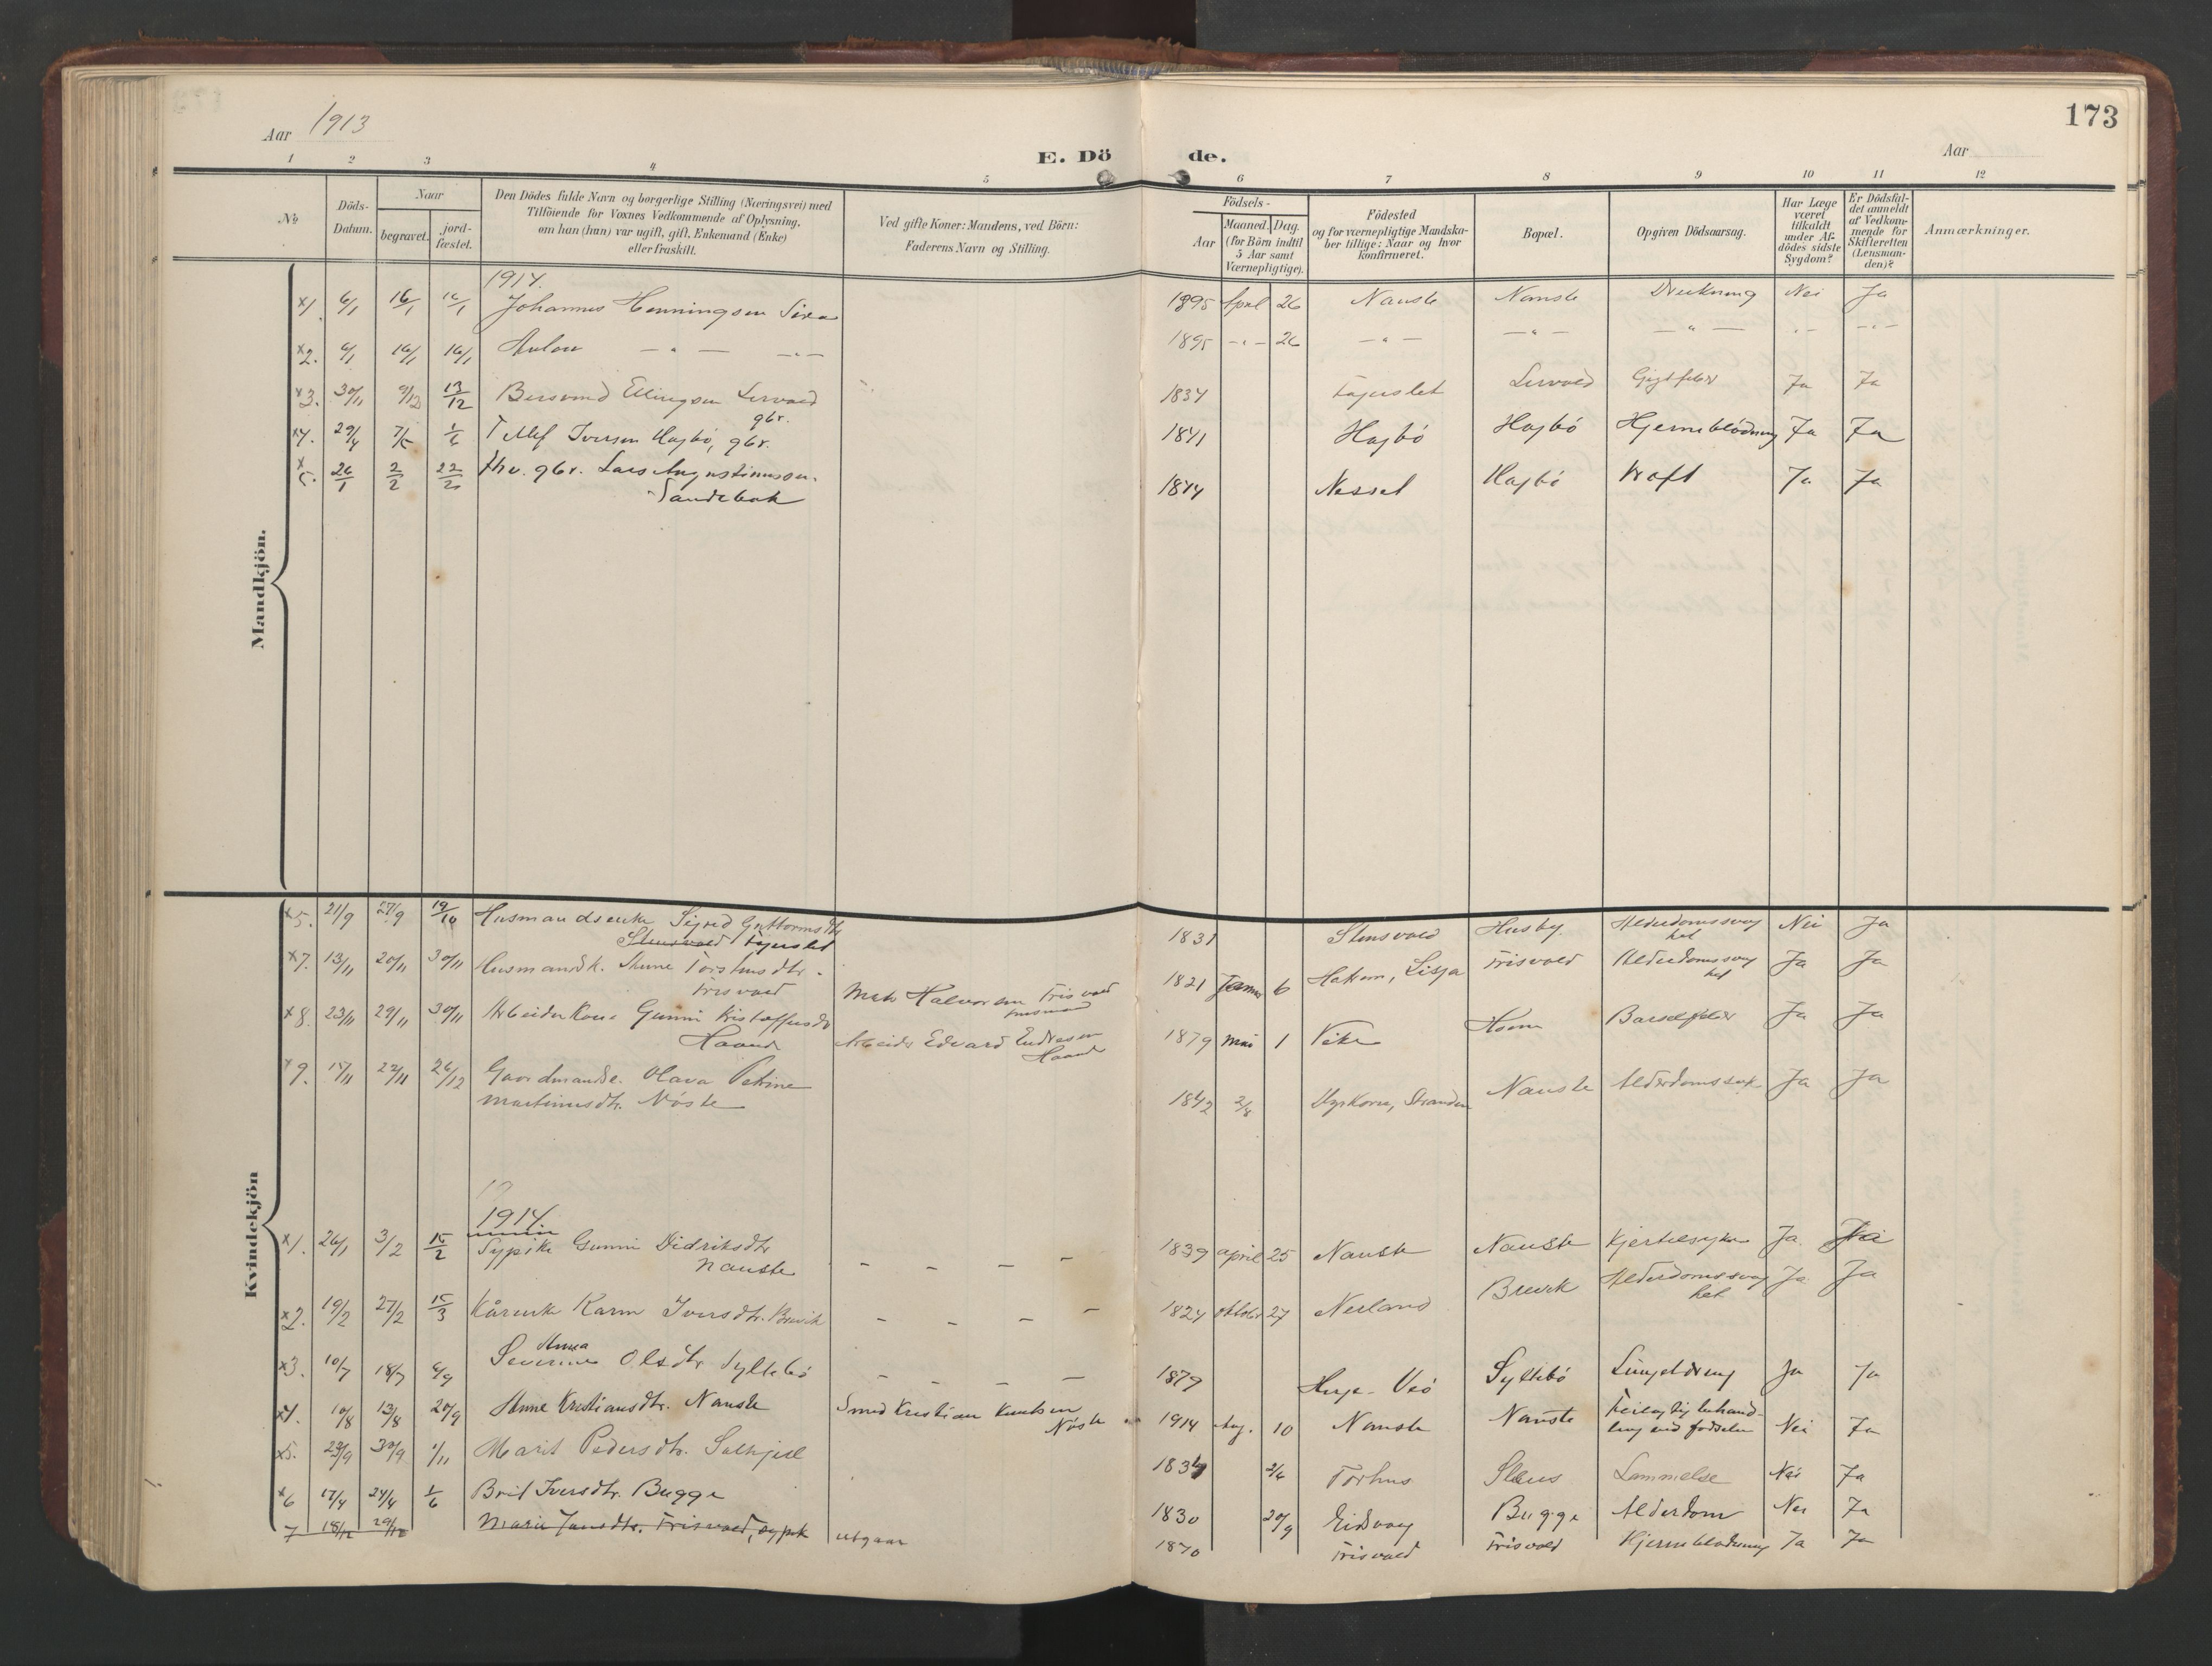 173
Aar 1913
E. Dö de.
Aar
1 2 3 4 5 6 7 8 9 10 11 12
No
Döds-Datum.
Naar
begravet.
jord-fæstet.
Den Dödes fulde Navn og borgerlige Stilling (Næringsvei) med
Tilföiende for Voxnes Vedkommende af Oplysning,
om han (hun) var ugift, gift, Enkemand (Enke)
eller fraskilt.
Ved gifte Koner: Mandens, ved Börn:
Faderens Navn og Stilling.
Födsels-
Aar
Maaned.
Dag.
(for Börn indtil
5 Aar samt
Værnepligtige).
Födested
og for værnepligtige Mandska-
ber tillige: Naar og hvor
konfirmeret.
Bopæl.
Opgiven Dödsaarsag.
Har Læge
været
tilkaldt
under Af-
dödes sidste
Sygdom?
Er Dödsfal-
det anmeldt
af Vedkom-
mende for
Skifteretten
(Lensman-
den)?
Anmærkninger.
Mandkjön.
1914.
x1. 6/1 16/1 16/1 Johannes Henningsen Sira 1895 April 26 Nauste Nauste Drukning Nei Ja
x2. 6/1 16/1 16/1 Anton — " — — " — 1895 — " — 26 — " — — " — — " — " — " —
x3. 30/11 9/12 13/12 Bersvend Ellingsen Lervold 1834 Tjerslet Lervold Gigtfeber Ja Ja
gbr.
x4. 29/4 7/5 1/6 Tellef Iversen Hagbö, gbr. 1841 Hagbö Hagbö Hjerneblödning Ja Ja
x5. 26/1 2/2 22/2 fhv. gbr. Lars Augustinussen 1844 Nesset Hagbö Kræft Ja Ja
Sandebak
Kvindekjön
x5. 21/9 27/9 19/10 Husmandsenke Sigrid Guttormsdtr 1831 Stensvold Husby Alderdomssvag Nei Ja
het
Stensvold Tjerslet
x7. 13/11 20/11 30/11 Husmandsk. Anne Torstensdtr. 1821 Januar 6 Lesja Frisvold Alderdomssvag Ja Ja
het
Frisvold Mats Halvorsen Frisvold
husmand
x8. 23/11 29/11 30/11 Arbeiderkone Gunni Kristoffersdtr 1879 Mai 1 Vike Barselfeber Ja Ja
Haand Arbeider Edvard Endresen
Haand
x9. 14/11 22/11 26/12 Gaardmandse. Olava Petrine 1842 2/8 Stranden Nauste Alderdomssvak Ja Ja
Martinusdtr. Nöste
1914
x1. 26/1 3/2 15/2 Sypike Gunni Didriksdtr 1839 april 25 Nauste Nauste Hjertesyke Ja
Nauste — — — —
x2. 19/2 27/2 15/3 Kårenke Karen Iversdtr. Brevik — — — — 1824 oktober 27 Nerland Brevik Alderdomssvag Ja Ja
het
Anna
x3. 10/7 18/7 6/9 Severine Olsdtr Syltebö — — — — 1879 Veö Syltebö Ja Ja
x4. 10/8 13/8 20/9 Anne Kristiansdtr. Nauste Smed Kristian Knutsen 1914 Aug. 10 Nauste Nauste Feilagtig behand-
ling ved fødselen Nei Ja
Nöste
x5. 23/9 30/9 1/11 Marit Pedersdtr. 1834 2/6 Torhus Lammelse Nei Ja
x6 17/4 24/4 1/6 Brit Iversdtr. Bugge 1830 20/9 Eidsvag Bugge Alderdom Nei Ja
7 18/12 29/12 Marie Jansdtr. Frisvold, sypik utgaar 1870 Frisvold Frisvold Hjerneblødning Ja Ja